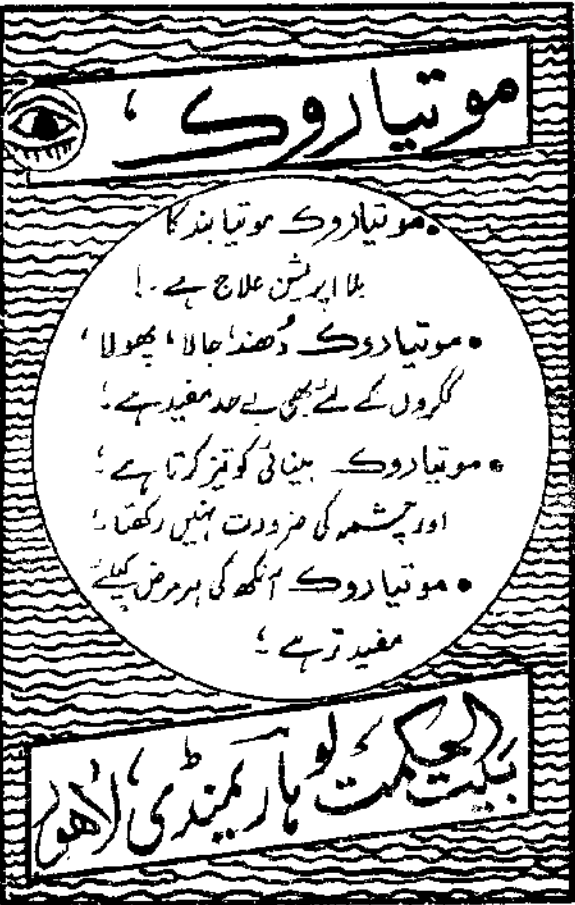 موتیا روک،
• موتیا روک موتیا بند کا
بلا اپریشن علاج ہے۔!
• موتیا روک دُھند، جالا، پھولا،
ککروں کے لئے بھی بے حد مفید ہے؛
• موتیا روک بینائی کو تیز کرتا ہے؛
اور چشمہ کی ضرورت نہیں رکھتا؛
• موتیا روک آنکھ کی ہر مرض کیلئے
مفید تر ہے؛
بیت الحکمت لوہاری منڈی، لاہور